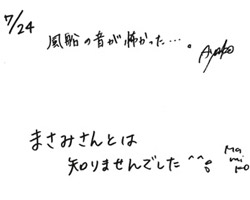 7/24
風船の音が怖かった…。
Ayako
まさみさんとは
知りませんでした^^;
Ma
mi